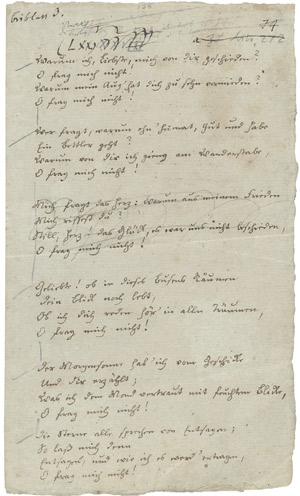 74
Warum ich, Liebste, mich von dir geschieden?
O frag mich nicht!
Warum mein Aug' hat dich zu sehn vermieden?
O frag mich nicht!
Wer fragt, warum ohn' Heimat, Gut und Habe
Ein Bettler geht?
Warum von dir ich gieng am Wanderstabe
O frag mich nicht!
Mich fragt das Herz: Warum aus meinem Frieden
Mich rissest du?
Still, Herz! das Glück, es war uns nicht beschieden,
O frag mich nicht!
Geliebte! ob in dieses Busens Räumen
dein Bild noch lebt,
Ob ich dich reden hör' in allen Träumen,
O frag mich nicht!
Der Morgensonne hab' ich vom Geschicke
Und dir erzählt;
Was ich dem Mond vertraut mit feuchtem Blicke,
O frag mich nicht!
Die Sterne alle sprechen von Entsagen;
So laß mich denn
Entsagen; und wie ich es werd' ertragen,
O frag mich nicht!